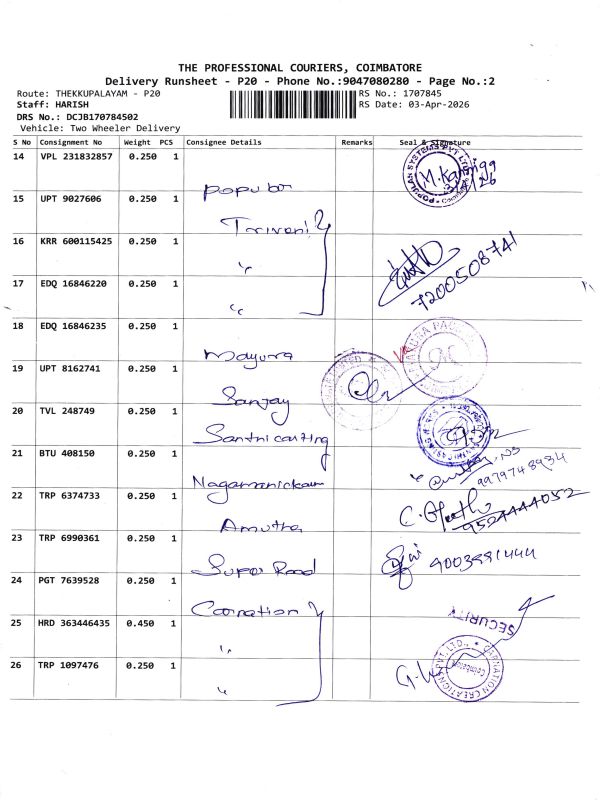 THE PROFESSIONAL COURIERS, COIMBATORE
Delivery Runsheet - P20 - Phone No.:9047080280 - Page No.:2
Route: THEKKUPALAYAM - P20
RS No.: 1707845
Staff: HARISH
RS Date: 03-Apr-2026
DRS No.: DCJB170784502
Vehicle: Two Wheeler Delivery
S No Consignment No Weight PCS Consignee Details Remarks Seal & Signature
14 VPL 231832857 0.250 1 Popular
15 UPT 9027606 0.250 1 Triveni
16 KRR 600115425 0.250 1 "
17 EDQ 16846220 0.250 1 " 7200508741
18 EDQ 16846235 0.250 1 Mayura
19 UPT 8162741 0.250 1 Sanjay
20 TVL 248749 0.250 1 Santhi casting
21 BTU 408150 0.250 1 Nagamanickam 9979748934
22 TRP 6374733 0.250 1 Amutha 9524444052
23 TRP 6990361 0.250 1 Super Road 9003991444
24 PGT 7639528 0.250 1 Carnation
SECURITY
25 HRD 363446435 0.450 1 "
26 TRP 1097476 0.250 1 "
CARNATION CREATIONS PVT. LTD.,
Coimbatore